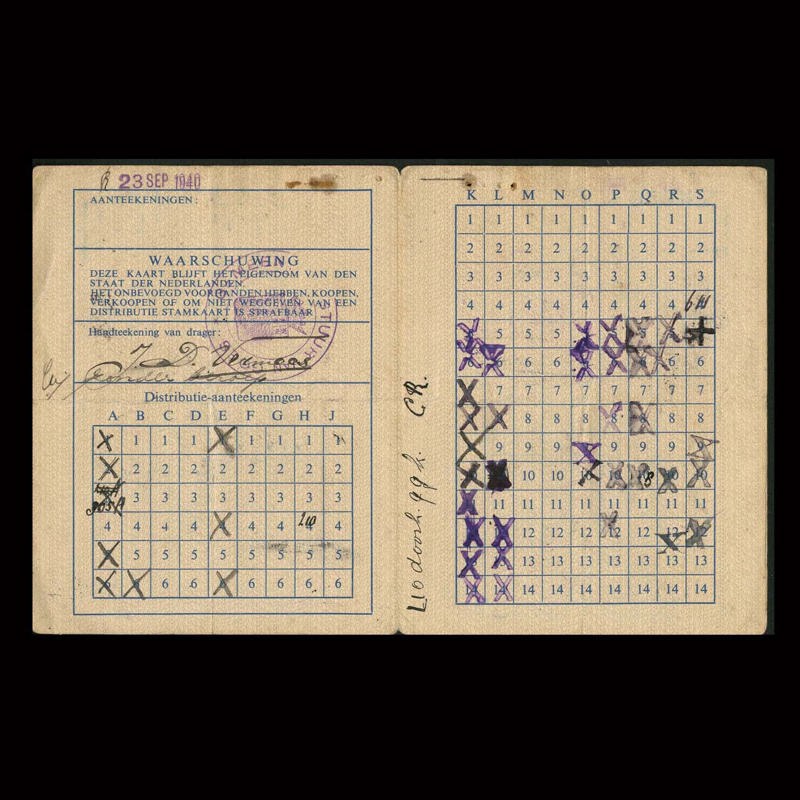 23 SEP 1940
AANTEEKENINGEN:
WAARSCHUWING
DEZE KAART BLIJFT HET EIGENDOM VAN DEN
STAAT DER NEDERLANDEN.
HET ONBEVOEGD VOORHANDEN HEBBEN, KOOPEN,
VERKOOPEN OF OM NIET WEGGEVEN VAN EEN
DISTRIBUTIE STAMKAART IS STRAFBAAR
Handteekening van drager:
J. D. Vermaas
Distributie-aanteekeningen
A B C D E F G H J
1 1 1 1 1 1
2 2 2 2 2 2 2 2
3 3 3 3 3 3 3 3
4 4 4 4 4 4 4 4
5 5 5 5 5 5 5 5
6 6 6 6 6 6 6 6
C.R.
K L M N O P Q R S
1 1 1 1 1 1 1 1 1
2 2 2 2 2 2 2 2 2
3 3 3 3 3 3 3 3 3
4 4 4 4 4 4 4 4
5 5 5
6 6 6
7 7 7 7 7 7 7 7
8 8 8 8 8
9 9 9 9 9 9
10 10
11 11 11 11 11 11 11 11
12 12 12 12 12
13 13 13 13 13 13 13
14 14 14 14 14 14 14 14